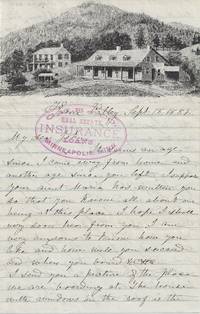 Sept. 18. 1887.
REAL ESTATE
INSURANCE
LOANS
MINNEAPOLIS, MINN.
My
seems an age
since I came away from home and
another age since you left. I suppose
your aunt Maria has written you
so that you know all about our
being at this place. I hope I shall
very soon hear from you. I am
very anxious to know how you
like and how well you
did when you
I send you a picture of the place
we are boarding at. The house
with windows in the roof is the